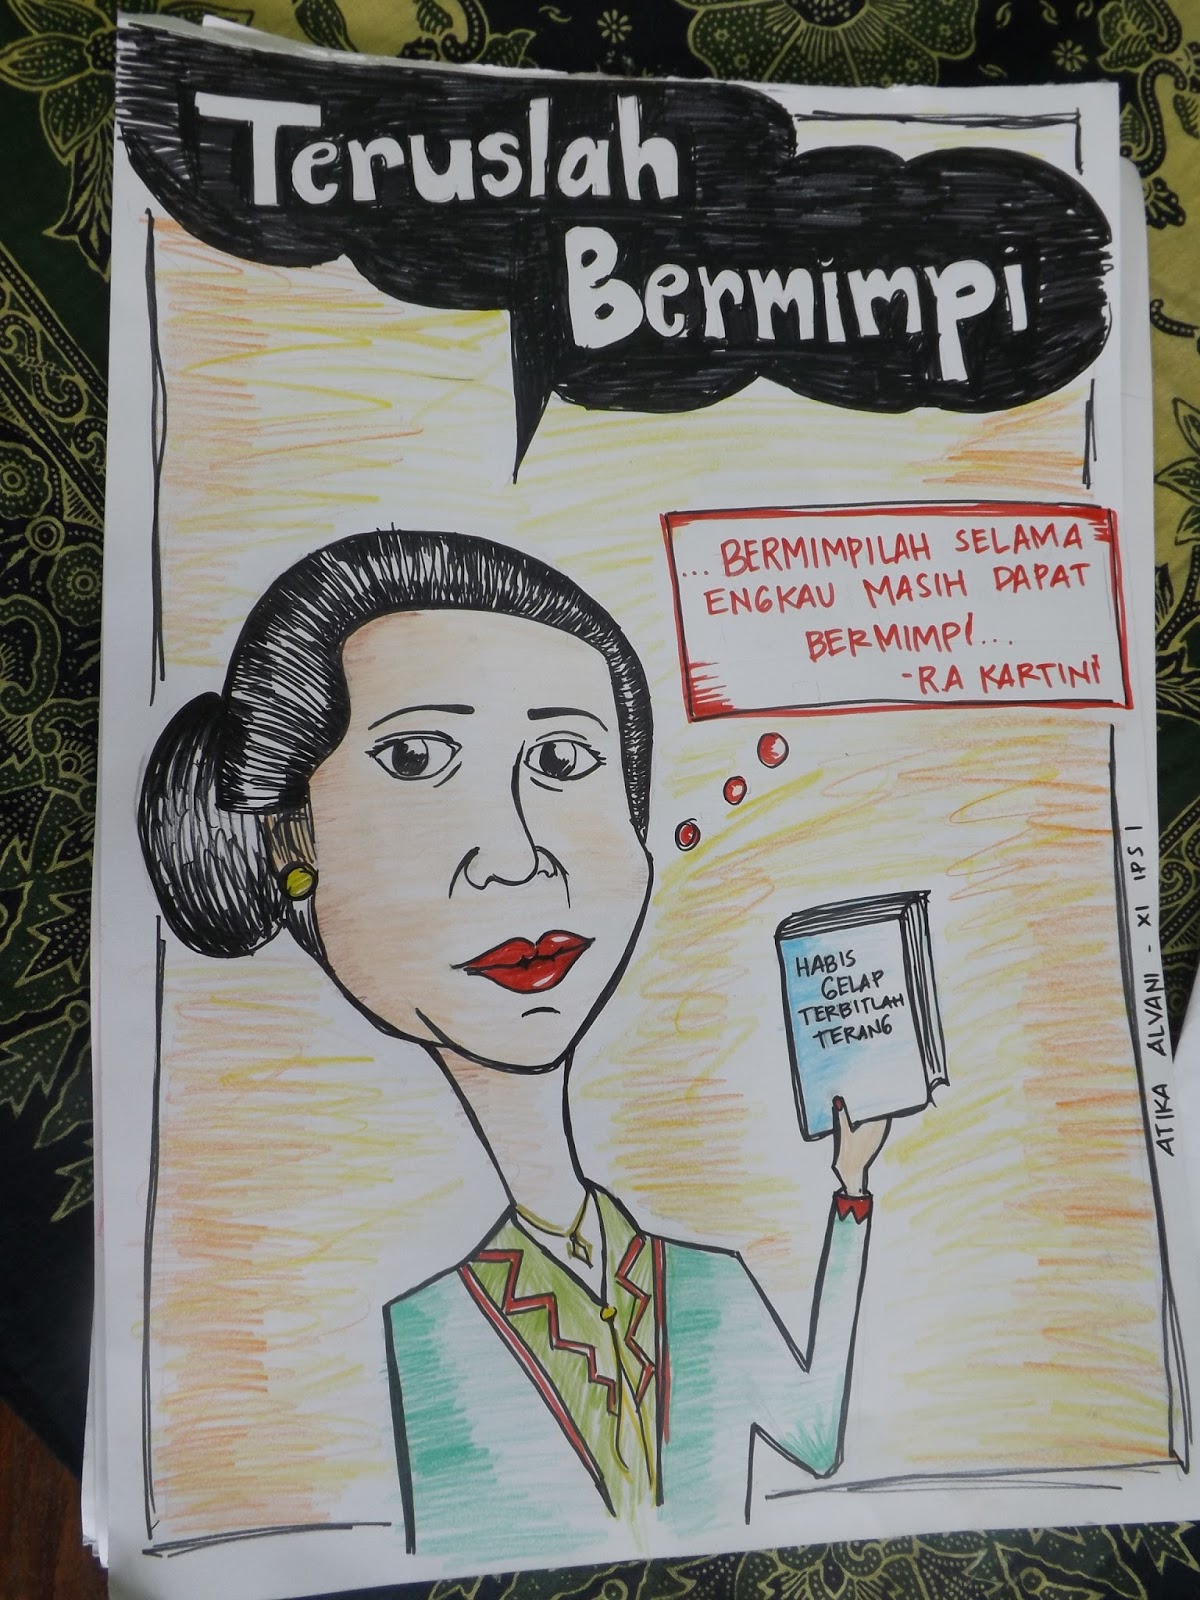 Teruslah
Bermimpi
... BERMIMPILAH SELAMA
ENGKAU MASIH DAPAT
BERMIMPI...
-R.A KARTINI
HABIS
GELAP
TERBITLAH
TERANG
ATIKA ALVANI - XI IPS I